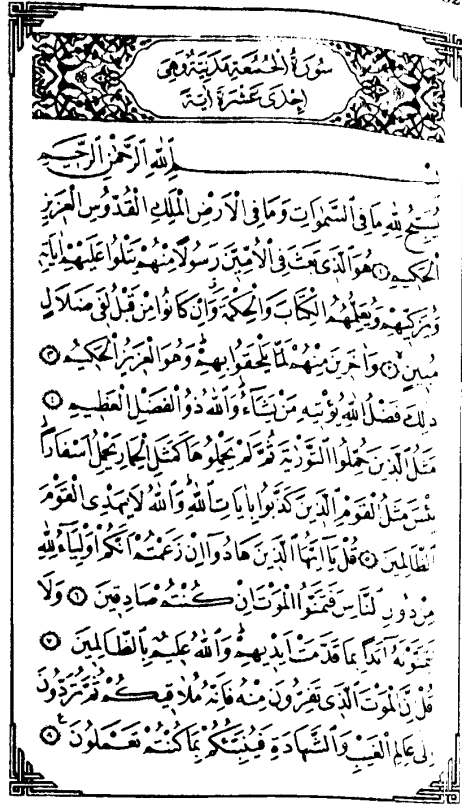 سُورَةُ الْجُمُعَةِ مَدَنِيَّةٌ وَهِيَ
اِحْدٰى عَشْرَةَ اٰيَةً
بِسْمِ اللّٰهِ الرَّحْمٰنِ الرَّحِيمِ
يُسَبِّحُ لِلّٰهِ مَا فِي السَّمٰوَاتِ وَمَا فِي الْاَرْضِ الْمَلِكِ الْقُدُّوسِ الْعَزِيزِ
الْحَكِيمِ ﴿١﴾ هُوَ الَّذِي بَعَثَ فِي الْاُمِّيِّنَ رَسُولًا مِنْهُمْ يَتْلُوا عَلَيْهِمْ اٰيَاتِهِ
وَيُزَكِّيهِمْ وَيُعَلِّمُهُمُ الْكِتَابَ وَالْحِكْمَةَ وَاِنْ كَانُوا مِنْ قَبْلُ لَفِي ضَلَالٍ
مُبِينٍ ﴿٢﴾ وَاٰخَرِينَ مِنْهُمْ لَمَّا يَلْحَقُوا بِهِمْ وَهُوَ الْعَزِيزُ الْحَكِيمُ ﴿٣﴾
ذٰلِكَ فَضْلُ اللّٰهِ يُؤْتِيهِ مَنْ يَشَاءُ وَاللّٰهُ ذُو الْفَضْلِ الْعَظِيمِ ﴿٤﴾
مَثَلُ الَّذِينَ حُمِّلُوا التَّوْرٰيةَ ثُمَّ لَمْ يَحْمِلُوهَا كَمَثَلِ الْحِمَارِ يَحْمِلُ اَسْفَارًا
بِئْسَ مَثَلُ الْقَوْمِ الَّذِينَ كَذَّبُوا بِاٰيَاتِ اللّٰهِ وَاللّٰهُ لَا يَهْدِي الْقَوْمَ
الظَّالِمِينَ ﴿٥﴾ قُلْ يَا اَيُّهَا الَّذِينَ هَادُوا اِنْ زَعَمْتُمْ اَنَّكُمْ اَوْلِيَاءُ لِلّٰهِ
مِنْ دُونِ النَّاسِ فَتَمَنَّوُا الْمَوْتَ اِنْ كُنْتُمْ صَادِقِينَ ﴿٦﴾ وَلَا
يَتَمَنَّوْنَهُ اَبَدًا بِمَا قَدَّمَتْ اَيْدِيهِمْ وَاللّٰهُ عَلِيمٌ بِالظَّالِمِينَ ﴿٧﴾
قُلْ اِنَّ الْمَوْتَ الَّذِي تَفِرُّونَ مِنْهُ فَاِنَّهُ مُلَاقِيكُمْ ثُمَّ تُرَدُّونَ
اِلٰى عَالِمِ الْغَيْبِ وَالشَّهَادَةِ فَيُنَبِّئُكُمْ بِمَا كُنْتُمْ تَعْمَلُونَ ﴿٨﴾